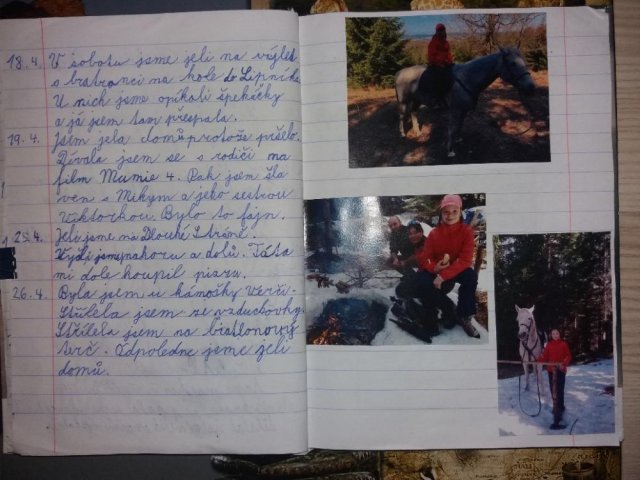 18.4. V sobotu jsme jeli na výlet
s bratranci na kole do Lipníka.
U nich jsme opíkali špekáčky
a já jsem tam přespala.
19.4. Jsem jela domů protože pršelo.
Dívala jsem se s rodiči na
film Mumie 4. Pak jsem šla
ven s Mikym a jeho sestrou
Viktorkou. Bylo to fajn.
25.4. Jeli jsme na Dlouhé Stráně.
Vyjli jsme nahoru a dolů. Táta
mi dole koupil pizzu.
26.4. Byla jsem u kámošky Verči.
Střílela jsem se vzduchovky.
Střílela jsem na biatlonový
terč. Odpoledne jsme jeli
domů.